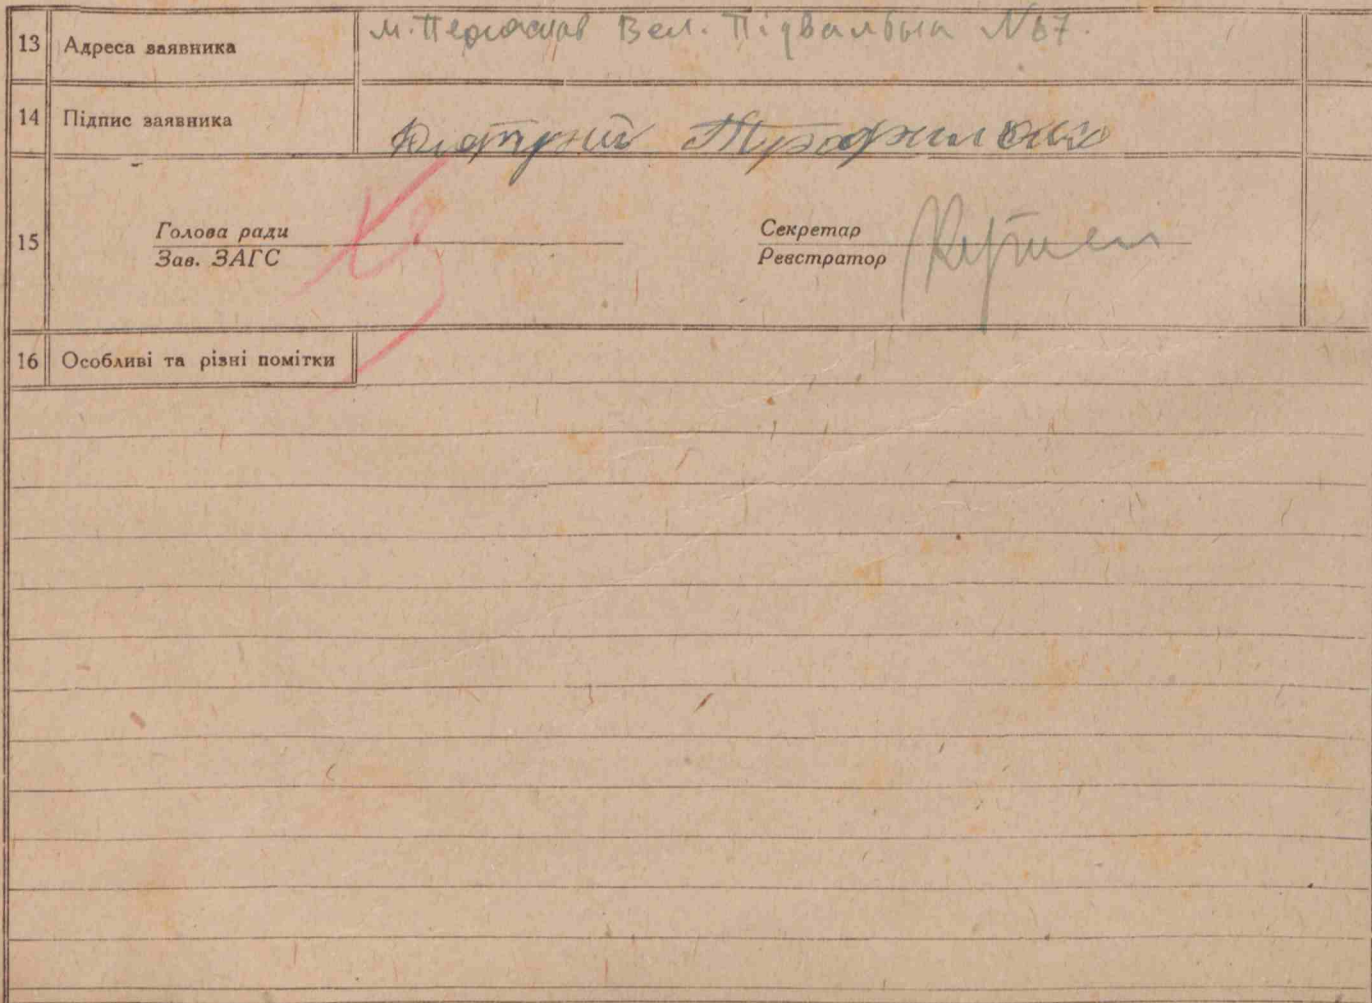 13 Адреса заявника м. Переяслав Вел. Підвальна №67.
14 Підпис заявника
15 Голова ради
Зав. ЗАГС
Секретар
Реєстратор
16 Особливі та різні помітки